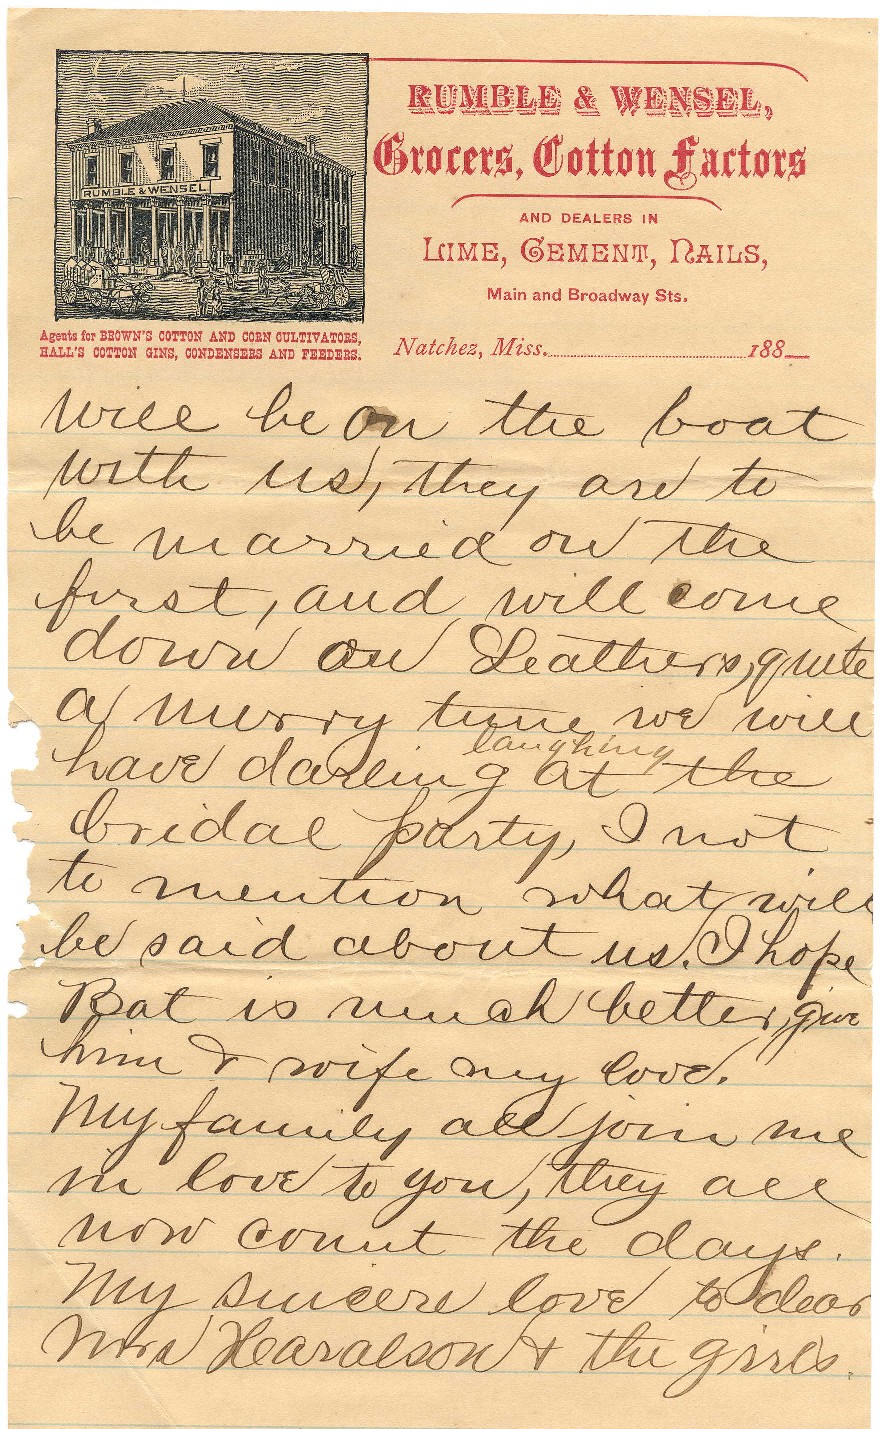 RUMBLE & WENSEL,
Grocers, Cotton Factors
AND DEALERS IN
LIME, CEMENT, NAILS,
Main and Broadway Sts.
RUMBLE & WENSEL
Agents for BROWN'S COTTON AND CORN CULTIVATORS,
HALL'S COTTON GINS, CONDENSERS AND FEEDERS.
Natchez, Miss. 188
will be on the boat
with us, they are to
be married on the
first, and will come
down on Leathers, quite
a merry time we will
laughing
have darling at the
bridal party, I not
to mention what will
be said about us. I hope
Bat is much better, give
him & wife my love.
My family all join me
in love to you, they all
now count the days.
My sincere love to dear
Mrs Haralson & the girls.